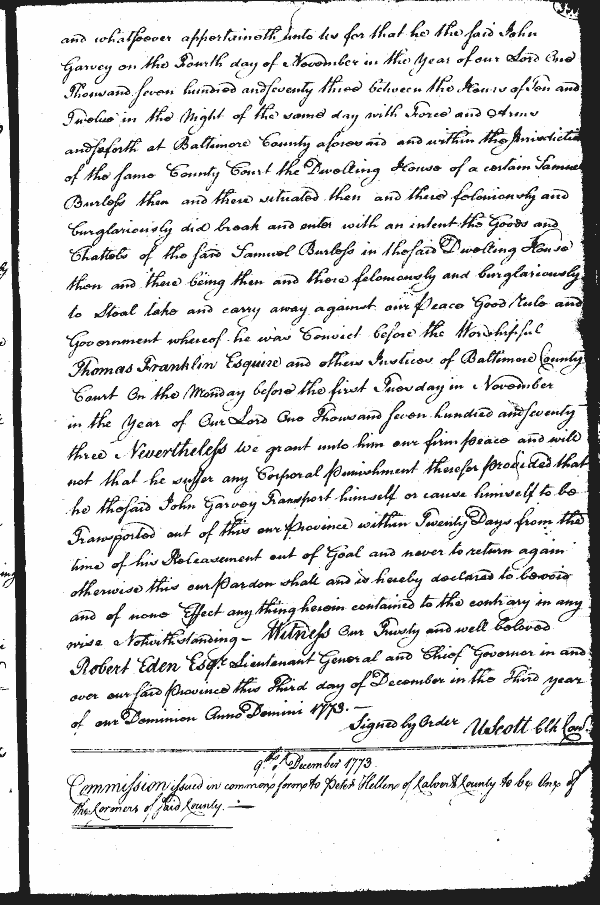 and whatsoever appertaineth unto us for that he the said John
Garvey on the Fourth day of November in the Year of our Lord One
Thousand seven hundred and seventy three between the Hours of Ten and
Twelve in the Night of the same day with Force and Arms
and soforth at Baltimore County aforesaid and within the Jurisdiction
of the same County Court the Dwelling House of a certain Samuel
Burless then and there situated then and there feloniously and
burglariously did break and enter with an intent the Goods and
Chattels of the said Samuel Burless in the said Dwelling House
then and there being then and there feloniously and burglariously
to Steal take and carry away against our Peace Good Rule and
Government whereof he was Convict before the Worshipful
Thomas Franklin Esquire and others Justices of Baltimore County
Court On the Monday before the first Tuesday in November
in the Year of Our Lord One Thousand seven hundred and seventy
three Nevertheless we grant unto him our firm Peace and will
not that he suffer any Corporal Punishment therefor Provided that
he the said John Garvey Transport himself or cause himself to be
Transported out of this our Province within Twenty Days from the
time of his Releasement out of Goal and never to return again
otherwise this our Pardon shall and is hereby declared to be void
and of none Effect any thing herein contained to the contrary in any
wise Notwithstanding - Witness Our Trusty and well beloved
Robert Eden Esqr. Lieutenant General and Chief Governor in and
over our said Province this Third day of December in the Third year
of our Dominion Anno Domini 1773. -
Signed by Order UScott Clk
9th of December 1773
Commission issued in common form to Peter Hellen of Calvert County to be One of
the Coroners of said County. -